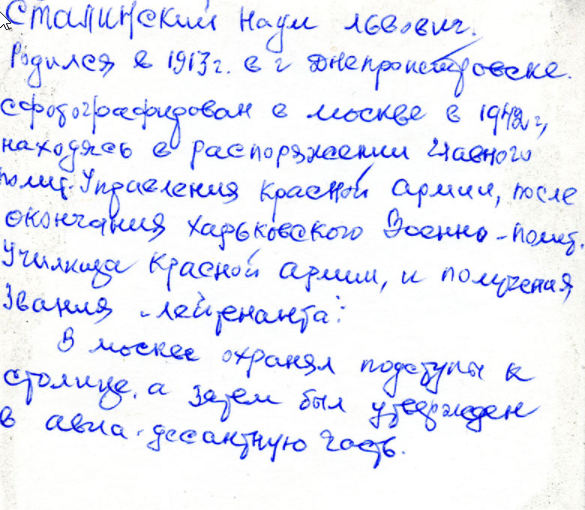 Сталинский Наум Львович.
Родился в 1913г. в г Днепропетровске.
сфотографирован в москве в 1942г,
находясь в распоряжении Главного
полит. Управления красной армии, после
окончания харьковского Военно-полит.
Училища красной армии, и получения
Звания "лейтенанта".
В москве охранял подступы к
столице, а затем был утвержден
в авиа-десантную часть.